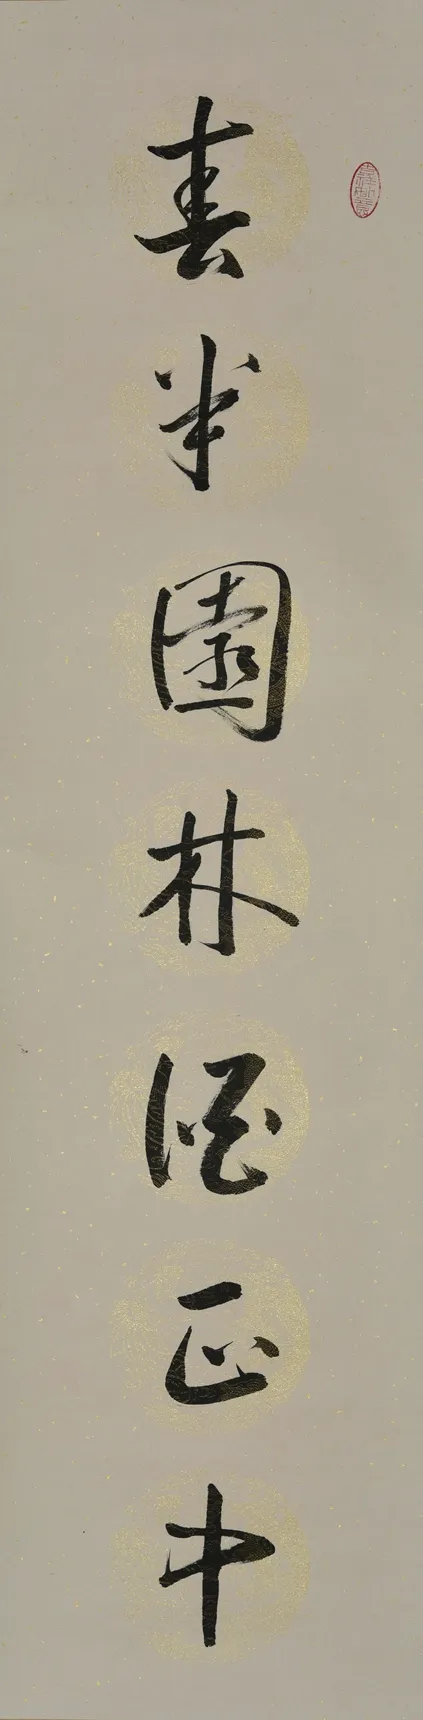 春半園林酒正中